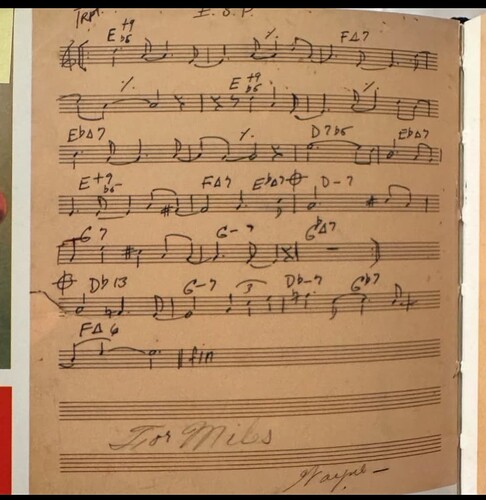 TRPT. E.S.P.
E+9 b5 ٪ F△7
٪ E+9 b5 ٪
Eb△7 ٪ D7b5 Eb△7
E+9 b5 F△7 Eb△7 D-7
G7 G-7 Gb△7
Db13 G-7 3 Db-7 Gb7
F△6
fin
For Miles
Wayne